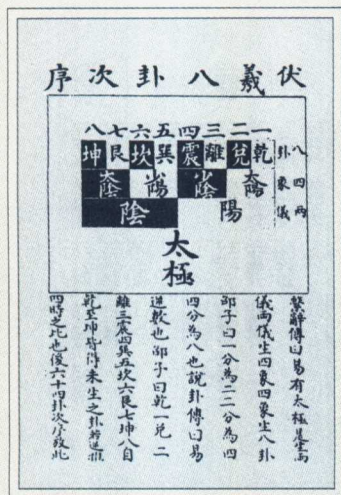 伏羲八卦次序
一二三四五六七八
乾兌離震巽坎艮坤
八卦
太陽少陰少陽太陰
四象
陽陰
兩儀
太極
繫辭傳曰易有太極是生兩
儀兩儀生四象四象生八卦
邵子曰一分為二二分為四
四分為八也說卦傳曰易
逆數也邵子曰乾一兌二
離三震四巽五坎六艮七坤八自
乾至坤皆得未生之卦若逆推
四時之比也後六十四卦次序放此